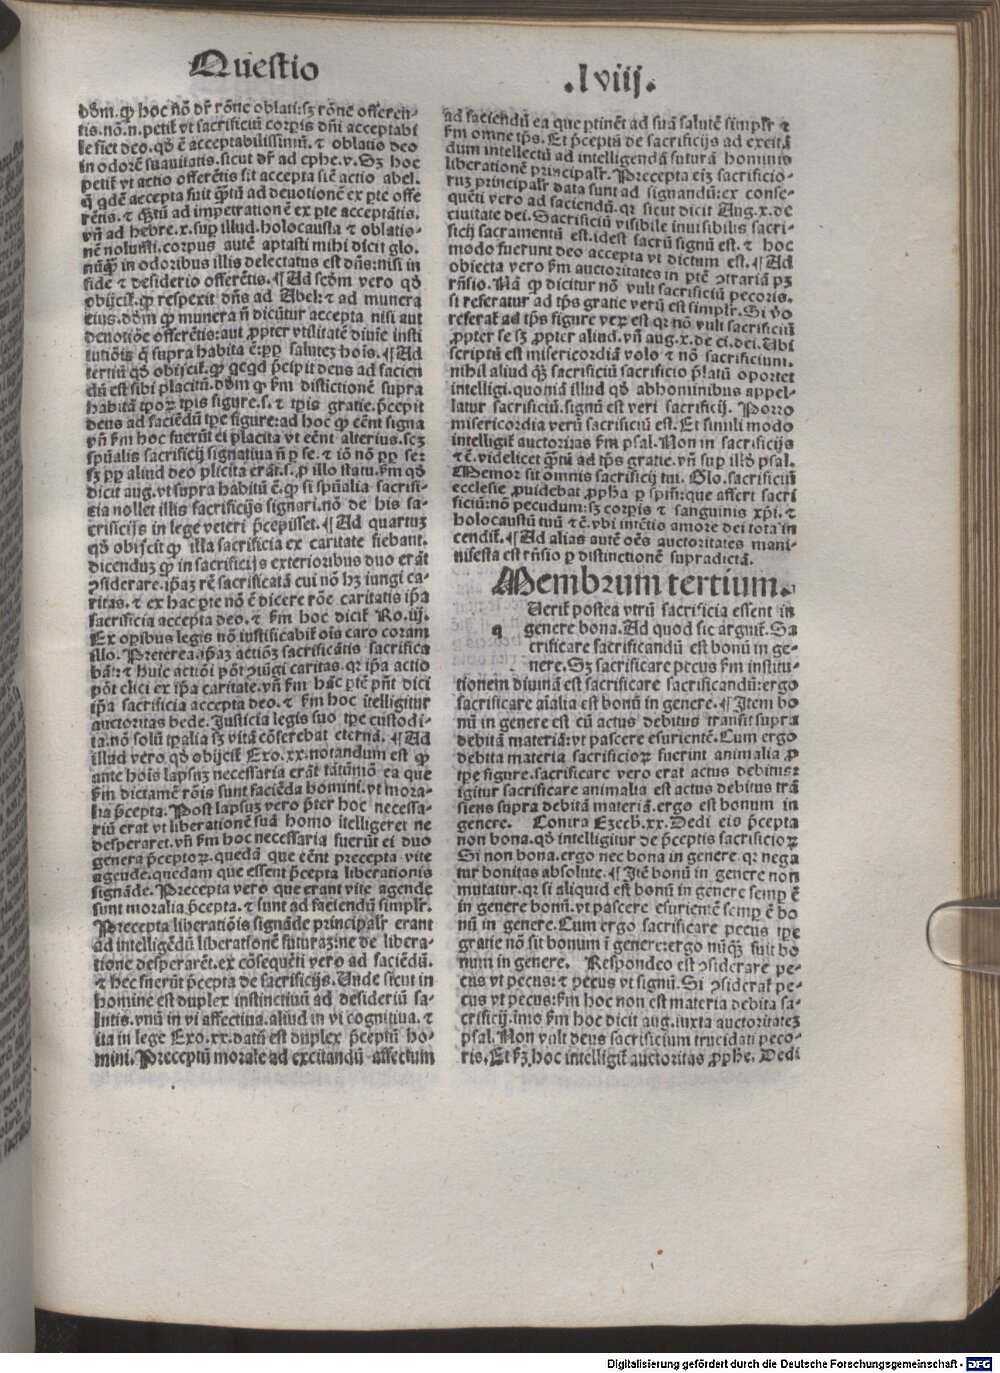 Questio
.lviij.
dōm. ꝙ hoc nō dr̄ rōne oblati:sꝫ rōne offeren-
tis. nō.n. petit᷑ vt sacrificiū corpis dn̄i acceptabi
le fiet deo. qđ ē acceptabilissimū. ⁊ oblatio deo
in odorē suauitatis. sicut dr̄ ad ephe. v. Sꝫ hoc
petit᷑ vt actio offerētis sit accepta sic̄ actio abel.
q̄ qdē accepta fuit ꝗ̄tū ad deuotionē ex pte offe
rētis. ⁊ ꝗ̄tū ad impetrationē ex pte acceptātis.
vn̄ ad hebre. x. sup illud. holocausta ⁊ oblatio-
nē noluisti. corpus autē aptasti mihi dicit glo.
nūꝗ̄ in odoribus illis delectatus est dn̄s: nisi in
fide ⁊ desiderio offerētis. ¶ Ad scđm vero qđ
obijcit᷑. ꝙ respexit dn̄s ad Abel: ⁊ ad munera
eius. dōm ꝙ munera n̄ dicūtur accepta nisi aut
deuotiōe offerētis: aut ꝓpter vtilitatē diuīe insti
tutiōis q̄ supra habita ē: ꝓp̄ salutez hoīs. ¶ Ad
tertiū qđ obijcit᷑. ꝙ qcqd p̄cipit deus ad facien
dū est sibi placitū. dōm ꝙ fm̄ distictionē supra
habitā tpoꝝ tpis figure. s. ⁊ tpis gratie. p̄cepit
deus ad faciēdū tpe figure: ad hoc ꝙ eēnt signa
vn̄ fm̄ hoc fuerūt ei placita vt eēnt alterius. scꝫ
spūalis sacrificij signatiua n̄ p se. ⁊ iō nō ꝓp̄ se:
sꝫ ꝓp̄ aliud deo placita erāt. s. p illo statu. fm̄ qđ
dicit aug. vt supra habitū ē. ꝙ si spūalia sacrifi-
cia nollet illis sacrificijs signari. nō de his sa-
crificijs in lege veteri p̄cepisset. ¶ Ad quartuꝫ
qđ obijcit ꝙ illa sacrificia ex caritate fiebant.
dicenduꝫ ꝙ in sacrificijs exterioribus duo erāt
ꝯsiderare. ipaꝫ rē sacrificatā cui nō hꝫ iungi ca-
ritas. ⁊ ex hac pte nō ē dicere rōe caritatis ipa
sacrificia accepta deo. ⁊ fm̄ hoc dicit᷑ Ro. iij.
Ex opibus legis nō iustificabit᷑ oīa caro coram
illo. Preterea. ipaꝫ actiōꝫ sacrificātis sacrifica
bāt: ⁊ huic actiōi pōt ꝯiūgi caritas. qr ipa actio
pōt elici ex ipa caritate. vn̄ fm̄ hāc ptē pn̄t dici
ipa sacrificia accepta deo. ⁊ fm̄ hoc ītelligitur
auctoritas bede. Iusticia legis suo tpe custodi-
ta. nō solū tpalia sꝫ vitā cōferebat eternā. ¶ Ad
illud vero qđ obijcit᷑ Exo. xx. notandum est ꝙ
ante hoīs lapsuꝫ necessaria erāt tātūmō ea que
fm̄ dictamē rōis sunt faciēda homini. vt mora-
lia p̄cepta. Post lapsuꝫ vero p̄ter hoc necessa-
riū erat vt liberationē suā homo ītelligeret ne
desperaret. vn̄ fm̄ hoc necessaria fuerūt ei duo
genera p̄ceptoꝝ. quedā que eēnt precepta vite
agende. quedam que essent p̄cepta liberationis
signāde. Precepta vero que erant vite agende
sunt moralia p̄cepta. ⁊ sunt ad faciendū simplr̄.
Precepta liberatiōis signāde principalr̄ erant
ad intelligēdū liberationē futuraꝫ: ne de libera-
tione desperarēt. ex cōsequēti vero ad faciēdū.
⁊ hec fuerūt p̄cepta de sacrificijs. Unde sicut in
homine est duplex instinctiuū ad desideriū sa-
lutis. vnū in vi affectiua. aliud in vi cognitiua. ⁊
ita in lege Exo. xx. datū est duplex p̄ceptū ho-
mini. Preceptū morale ad excitandū affectum
ad faciendū ea que ptinēt ad suā salutē simplr̄ ⁊
fm̄ omne tps. Et p̄cepta de sacrificijs ad excitā
dum intellectū ad intelligendā futurā hominis
liberationē principalr̄. Precepta eiꝫ sacrificio-
ruꝫ principalr̄ data sunt ad signandū: ex conse-
quēti vero ad faciendū. qr sicut dicit Aug. x. de
ciuitate dei. Sacrificiū visibile inuisibilis sacri-
ficij sacramentū est. idest sacrū signū est. ⁊ hoc
modo fuerunt deo accepta vt dictum est. ¶ Ad
obiecta vero fm̄ auctoritates in ptē ꝯtrariā pꝫ
rn̄sio. Nā ꝙ dicitur nō vult sacrificiū pecoris.
si referatur ad tps gratie verū est simplr̄. Si vo
referat᷑ ad tps figure veꝝ est qr nō vult sacrificiū
ꝓpter se sꝫ ꝓpter aliud. vn̄ aug. x. de ci. dei. Ubi
scriptū est misericordiā volo ⁊ nō sacrificium.
nihil aliud ꝗ̄ sacrificiū sacrificio p̄latū oportet
intelligi. quoniā illud qđ abhominibus appel-
latur sacrificiū. signū est veri sacrificij. Porro
misericordia verū sacrificiū est. Et simili modo
intelligit᷑ auctoritas fm̄ psal. Non in sacrificijs
⁊ cē. videlicet ꝗ̄tū ad tps gratie. vn̄ sup illđ psal.
Memor sit omnis sacrificij tui. Glo. sacrificiū
ecclesie ꝓuidebat ꝓpha p spm̄: que affert sacri
ficiū: nō pecudum: sꝫ corpis ⁊ sanguinis xp̄i. ⁊
holocaustū tuū ⁊ cē. vbi intētio amore dei tota in
cendit᷑. ¶ Ad alias autē oēs auctoritates mani-
nifesta est rn̄sio p distinctionē supradictā.
Membrum tertium.
q
Uerit᷑ postea vtrū sacrificia essent in
genere bona. Ad quod sic arguit᷑. Sa
crificare sacrificandū est bonū in ge-
nere. Sꝫ sacrificare pecus fm̄ institu-
tionem diuinā est sacrificare sacrificandū: ergo
sacrificare aīalia est bonū in genere. ¶ Item bo
nū in genere est cū actus debitus transit supra
debitā materiā: vt pascere esurientē. Cum ergo
debita materia sacrificioꝝ fuerint animalia ꝓ
tpe figure. sacrificare vero erat actus debitus:
igitur sacrificare animalia est actus debitus trā
siens supra debitā materiā. ergo est bonum in
genere. Contra Ezech. xx. Dedi eis p̄cepta
non bona. qđ intelligitur de p̄ceptis sacrificioꝝ
Si non bona. ergo nec bona in genere. qr nega
tur bonitas absolute. ¶ Itē bonū in genere non
mutatur. qr si aliquid est bonū in genere semp ē
in genere bonū. vt pascere esurientē semp ē bo
nū in genere. Cum ergo sacrificare pecus tpe
gratie nō sit bonum ī genere: ergo nūꝗ̄ fuit bo
num in genere. Respondeo est ꝯsiderare pe-
cus vt pecus: ⁊ pecus vt signū. Si ꝯsiderat᷑ pe-
cus vt pecus: fm̄ hoc non est materia debita sa-
crificij. imo fm̄ hoc dicit aug. iuxta auctoritateꝫ
psal. Non vult deus sacrificium trucidati peco-
ris. Et fꝫ hoc intelligit᷑ auctoritas ꝓphe. Dedi
Digitalisierung gefördert durch die Deutsche Forschungsgemeinschaft - DFG